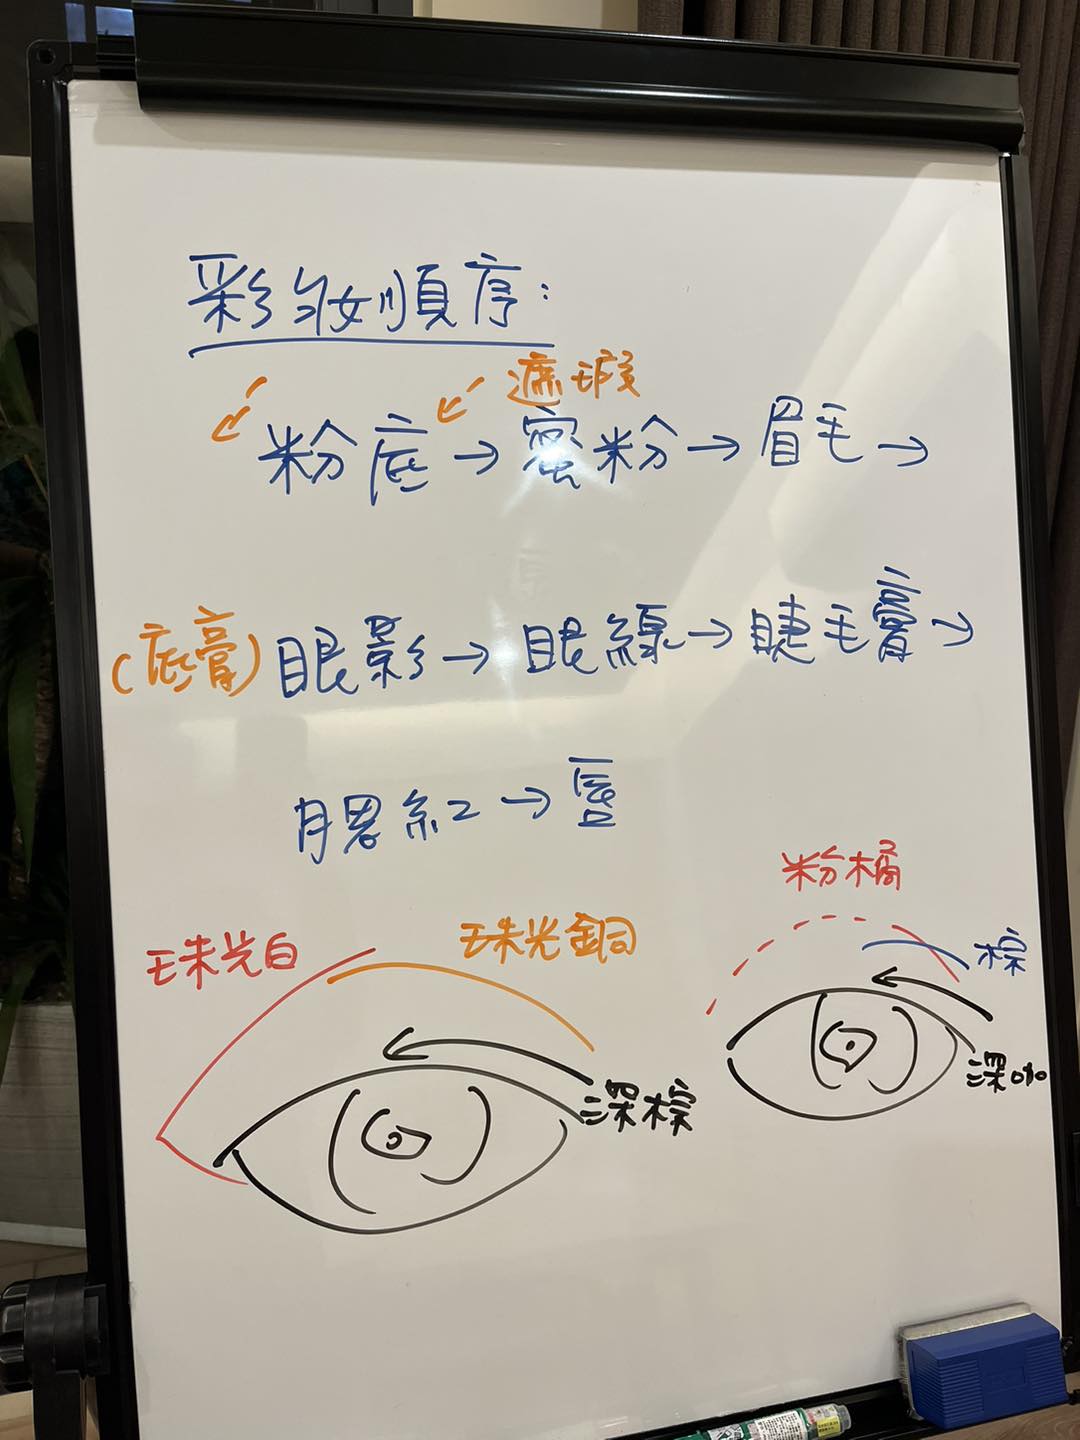 彩妝順序：
遮瑕
粉底→蜜粉→眉毛→
(底膏)眼影→眼線→睫毛膏→
腮紅→唇
粉橘
珠光白 珠光銅
棕
深咖
深棕